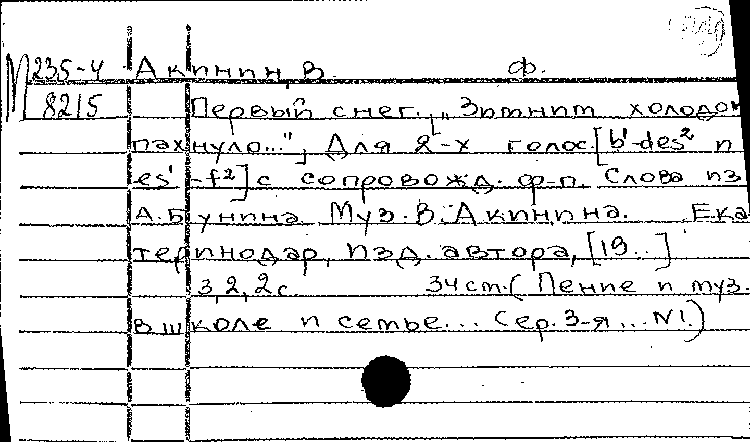 М 235-4 Акинин, В. Ф.
8215 Первый снег. „Зимним холодом
пахнуло...", Для 2-х голос. [b'-des² и
es'-f²] с сопровожд. ф-п. Слова из
А. Бунина. Муз. В. Акинина. Ека
теринодар, изд. автора, [19..]
3, 2, 2 с. 34 cm. (Пение и муз.
в школе и семье... Сер. 3-я... N1.)